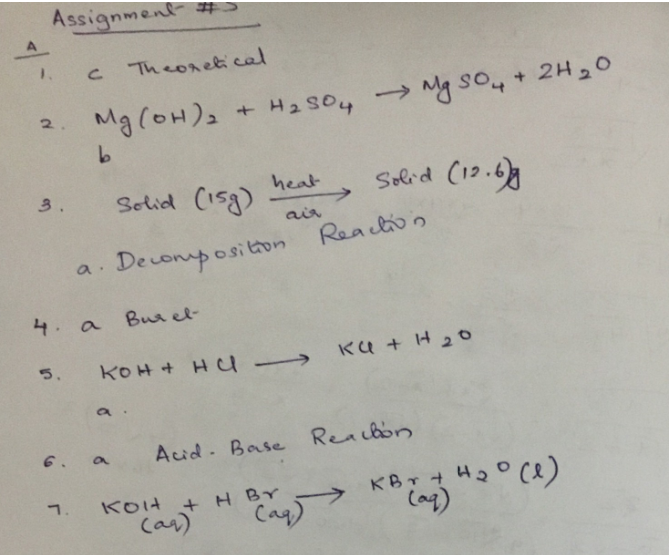 Assignment #3
A
1. c Theoretical
2. Mg(OH)2 + H2SO4 → MgSO4 + 2H2O
b
3. Solid (15g) heat/air → Solid (12.6)g
a. Decomposition Reaction
4. a Buret
5. KOH + HCl → KCl + H2O
a.
6. a Acid-Base Reaction
7. KOH (aq) + HBr (aq) → KBr (aq) + H2O (l)